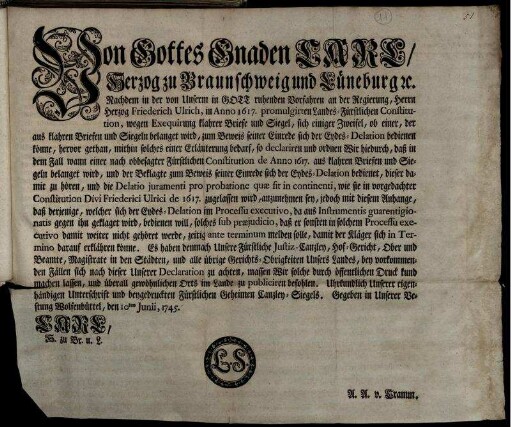 Von Gottes Gnaden CARL/
Herzog zu Braunschweig und Lüneburg ꝛc.
Nachdem in der von Unserm in GOTT ruhenden Vorfahren an der Regierung, Herrn
Herzog Friederich Ulrich, in Anno 1617. promulgirten Landes-Fürstlichen Constitu-
tion, wegen Exequirung klahrer Briefe und Siegel, sich einiger Zweifel, ob einer, der
aus klahren Briefen und Siegeln belanget wird, zum Beweis seiner Einrede sich der Eydes-Delation bedienen
könne, hervor gethan, mithin solches einer Erläuterung bedarf, so declariren und ordnen Wir hiedurch, daß in
dem Fall wann einer nach obbesagter Fürstlichen Constitution de Anno 1617. aus klahren Briefen und Sie-
geln belanget wird, und der Beklagte zum Beweis seiner Einrede sich der Eydes-Delation bedienet, dieser da-
mit zu hören, und die Delatio juramenti pro probatione quæ fit in continenti, wie sie in vorgedachter
Constitution Divi Friederici Ulrici de 1617. zugelassen wird, anzunehmen sey, jedoch mit diesem Anhange,
daß derjenige, welcher sich der Eydes-Delation im Processu executivo, da aus Instrumentis guarentigio-
natis gegen ihn geklaget wird, bedienen will, solches sub præjudicio, daß er sonsten in solchem Processu exe-
cutivo damit weiter nicht gehöret werde, zeitig ante terminum melden solle, damit der Kläger sich in Ter-
mino darauf erklähren könne. Es haben demnach Unsere Fürstliche Justiz-Canzley, Hof-Gericht, Ober und
Beamte, Magistrate in den Städten, und alle übrige Gerichts-Obrigkeiten Unsers Landes, bey vorkommen-
den Fällen sich nach dieser Unserer Declaration zu achten, massen Wir solche durch öffentlichen Druck kund
machen lassen, und überall gewöhnlichen Orts im Lande zu publiciren befohlen. Uhrkundlich Unserer eigen-
händigen Unterschrift und beygedruckten Fürstlichen Geheimen Canzley-Siegels. Gegeben in Unserer Ve-
stung Wolfenbüttel, den 10ten Junii, 1745.
CARL/
H. zu Br. u. L.
LS
A. A. v. Cramm.